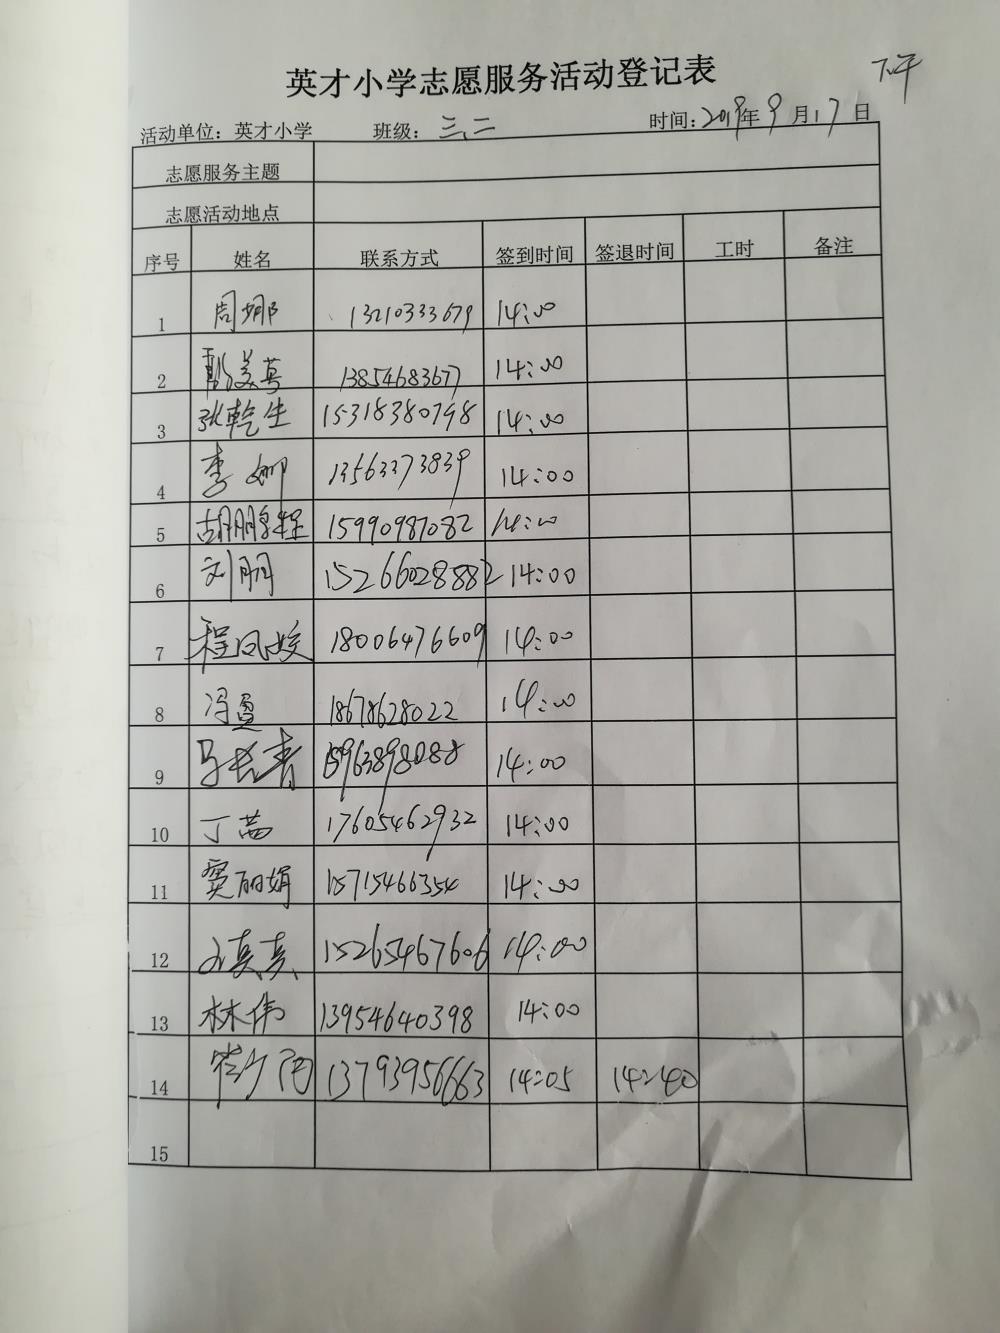 下午
英才小学志愿服务活动登记表
活动单位：英才小学 班级：三、二 时间：2019年9月17日
志愿服务主题
志愿活动地点
序号 姓名 联系方式 签到时间 签退时间 工时 备注
1 周娜 13210333679 14:00
2 13854683677 14:00
3 张乾生 15318380798 14:00
4 李娜 13563373839 14:00
5 15990987082 14:00
6 刘朋 15266028882 14:00
7 程凤姣 18006476609 14:00
8 冯盈 18678628022 14:00
9 马长青 15963898088 14:00
10 丁茜 17605462932 14:00
11 窦丽娟 15715466354 14:00
12 15265467606 14:00
13 林伟 13954640398 14:00
14 13793956663 14:05 14:40
15